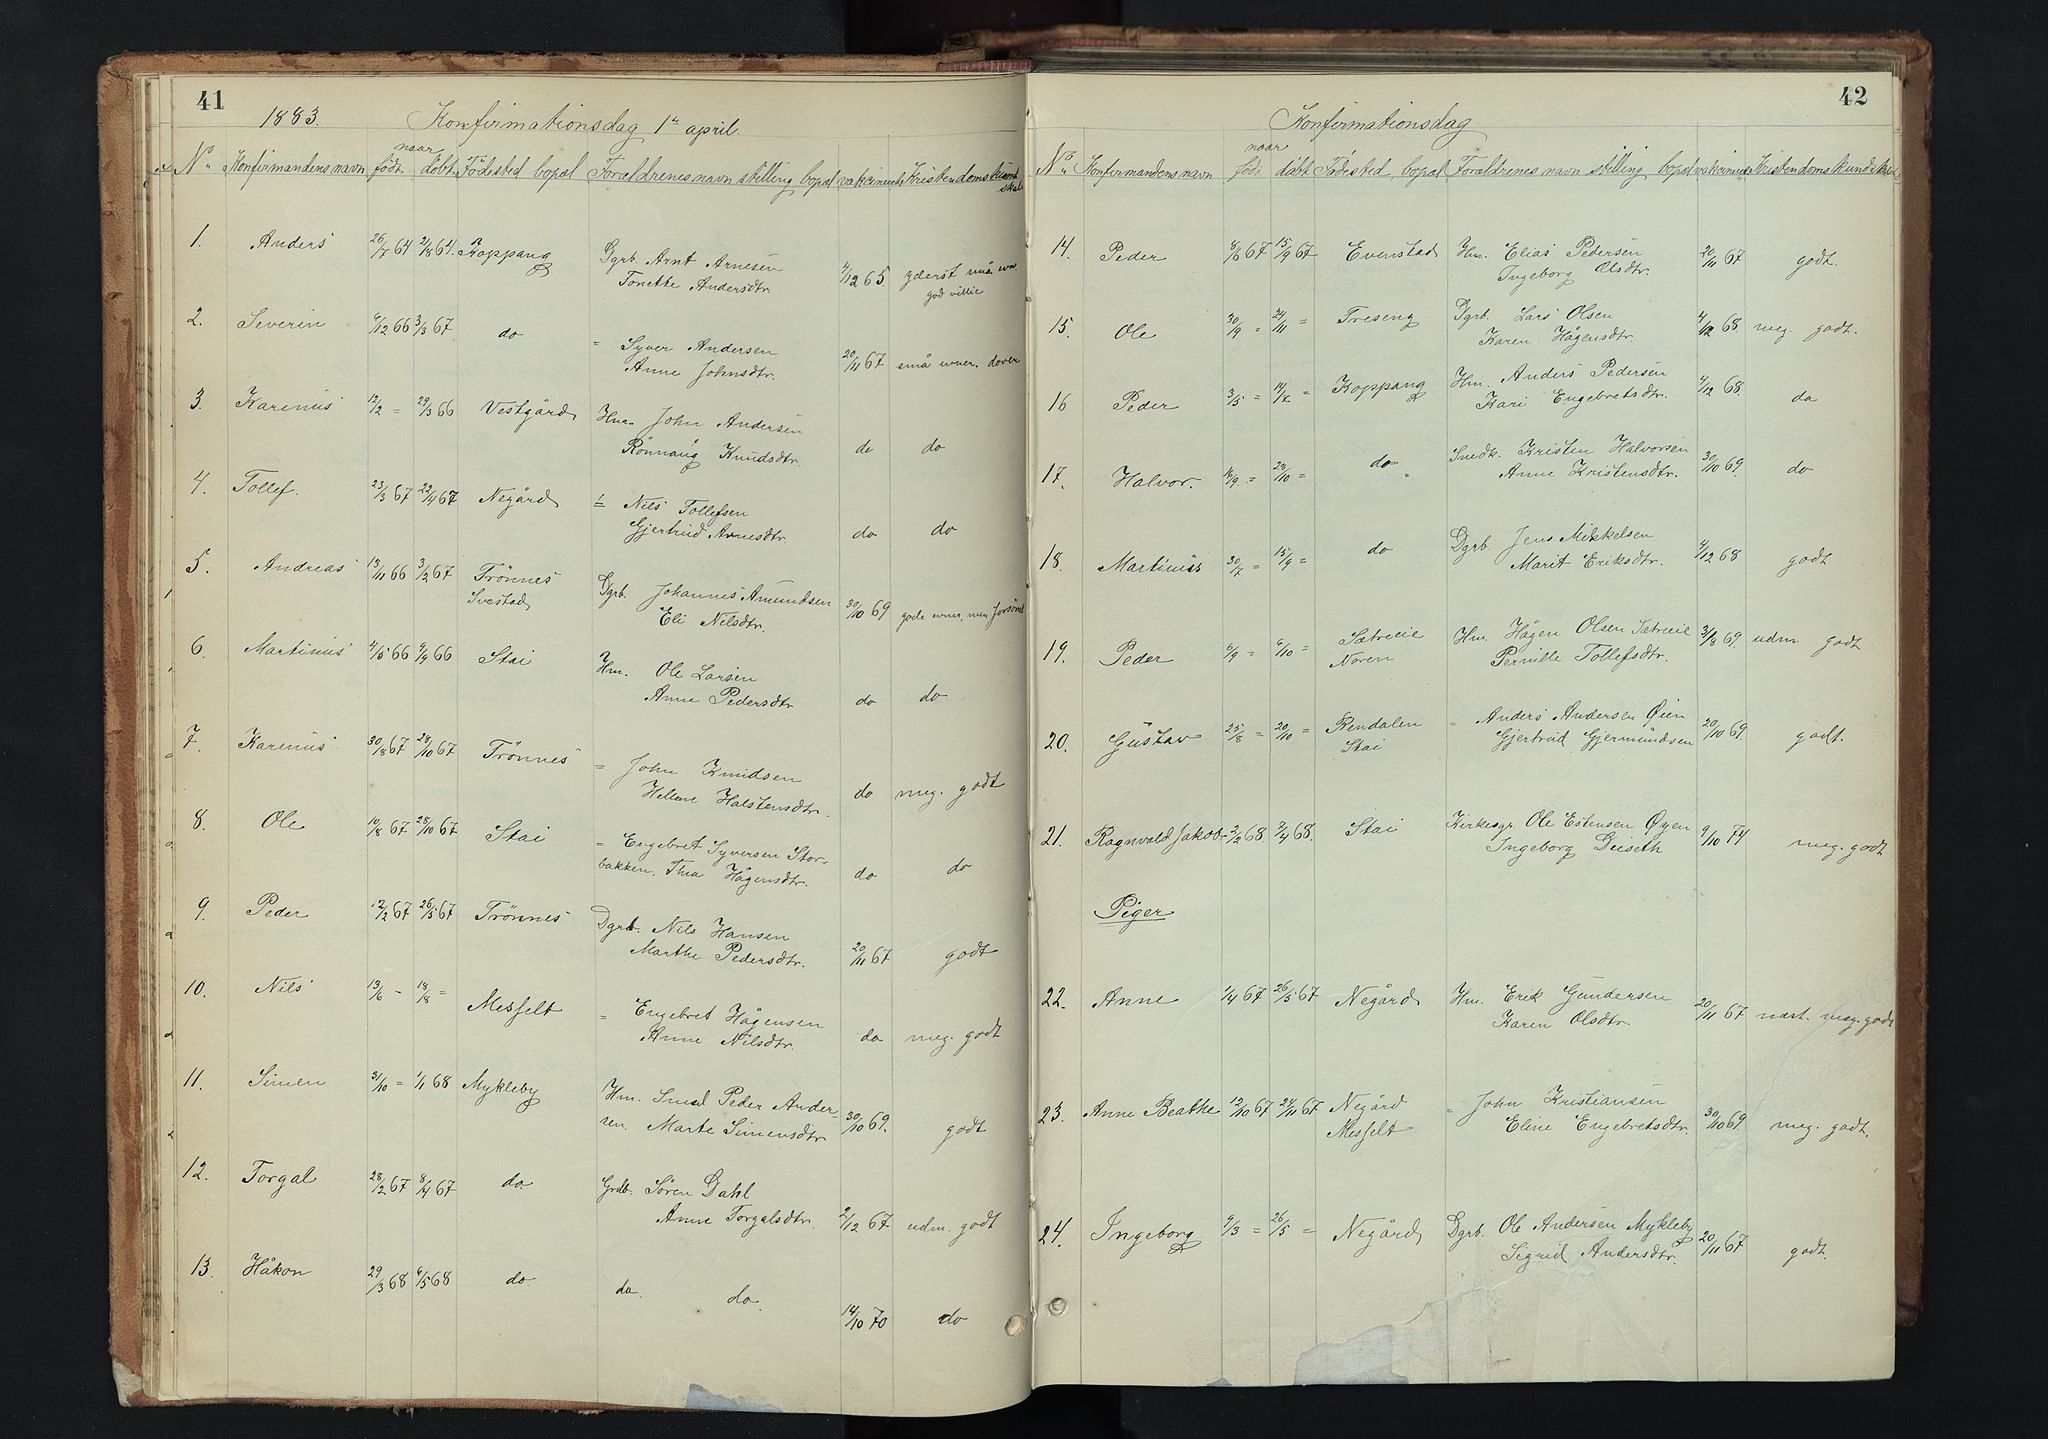 41
1883. Konfirmationsdag 1ste april.
No Konfirmandens navn naar født døbt Fødested bopæl Forældrenes navn stilling bopæl vakcineret Kristendomskundskab
1. Anders 26/7 64 2/8 64. Koppang Dgrb. Arnt Arnesen
Tonette Andersdtr. 4/12 65. yderst små evn
god villie
2. Severin 6/12 66 3/3 67 do = Syver Andersen
Anne Johnsdtr. 20/11 67 små evner. doven
3. Karenus 12/2 = 29/3 66 Vestgård Hm. John Andersen
Rønnaug Knudsdtr. do do
4. Tollef. 23/3 67 22/4 67 Negård = Nils Tollefsen
Gjertrud Arnesdtr. do do
5. Andreas 13/11 66 3/2 67 Trønnes
Svestad Dgrb. Johannes Amundsen
Eli Nilsdtr. 30/10 69 gode evner, men forsømt
6. Martinus 4/5 66 9/9 66 Stai Hm. Ole Larsen
Anne Pedersdtr do do
7. Karenus 30/8 67 28/10 67 Trønnes = John Knudsen
Hellene Halstensdtr. do meg. godt
8. Ole 10/8 67 28/10 67 Stai = Engebret Syversen Stor-
bakken, Thea Hågensdtr. do do
9. Peder 12/2 67 26/5 67 Trønnes Dgrb. Nils Hansen
Marthe Pedersdtr. 20/11 67 godt
10. Nils 13/6 - 18/8 = Messelt = Engebret Hågensen
Anne Nilsdtr. do meg. godt
11. Simen 31/10 = 1/1 68 Mykleby Hm. Smed Peder Ander-
sen. Marte Simensdtr 30/10 69. godt
12. Torgal 28/2 67 8/4 67 do. Grdb. Søren Dahl
Anne Torgalsdtr. 2/12 67 udm. godt
13. Håkon 29/3 68 6/5 68 do. do. do. 14/10 70 do
42
Konfirmationsdag
No Konfirmandens navn naar født døbt Fødested, bopæl Forældrenes navn stilling bopæl vakcineret Kristendomskundskab
14. Peder 8/6 67 15/9 67 Evenstad Hm. Elias Pedersen
Ingeborg Olsdtr. 20/11 67 godt.
15. Ole 30/9 = 24/11 = Treseng Dgrb. Lars Olsen
Karen Hågensdtr. 4/12 68. meg. godt.
16 Peder 3/5 = 14/7 = Koppang Hm. Anders Pedersen
Kari Engebretsdtr. 4/12 68. do
17. Halvor. 18/9 = 28/10 = do Snedk. Kristen Halvorsen
Anne Kristensdtr. 30/10 69. do
18. Martinus 30/7 = 15/9 = do Dgrb. Jens Mikkelsen
Marit Eriksdtr. 4/12 68 godt
19. Peder 6/9 = 6/10 = Sætreeie
Noren Hm. Hågen Olsen Sætreeie
Pernille Tollefsdtr. 3/8 69. udm. godt
20. Gustav 25/8 = 20/10 = Rendalen
Stai = Anders Andersen Øien
Gjertrud Gjermundsen 20/10 69. godt.
21. Ragnvald Jakob 2/2 68. 7/4 68. Stai Kirkesgr. Ole Estensen Øyen
Ingeborg Deiseth 9/10 74 meg. godt
Piger
22. Anne 1/4 67 26/5 67 Negård Hm. Erik Gundersen
Karen Olsdtr. 20/11 67 næst. meg. godt
23. Anne Beathe 12/10 67 24/11 67 Negård
Messelt = John Kristiansen
Eline Engebretsdtr. 30/10 69. meg. godt.
24. Ingeborg 9/3 = 26/5 = Negård Dgrb. Ole Andersen Mykleby
Sigrid Andersdtr. 20/11 67 godt.